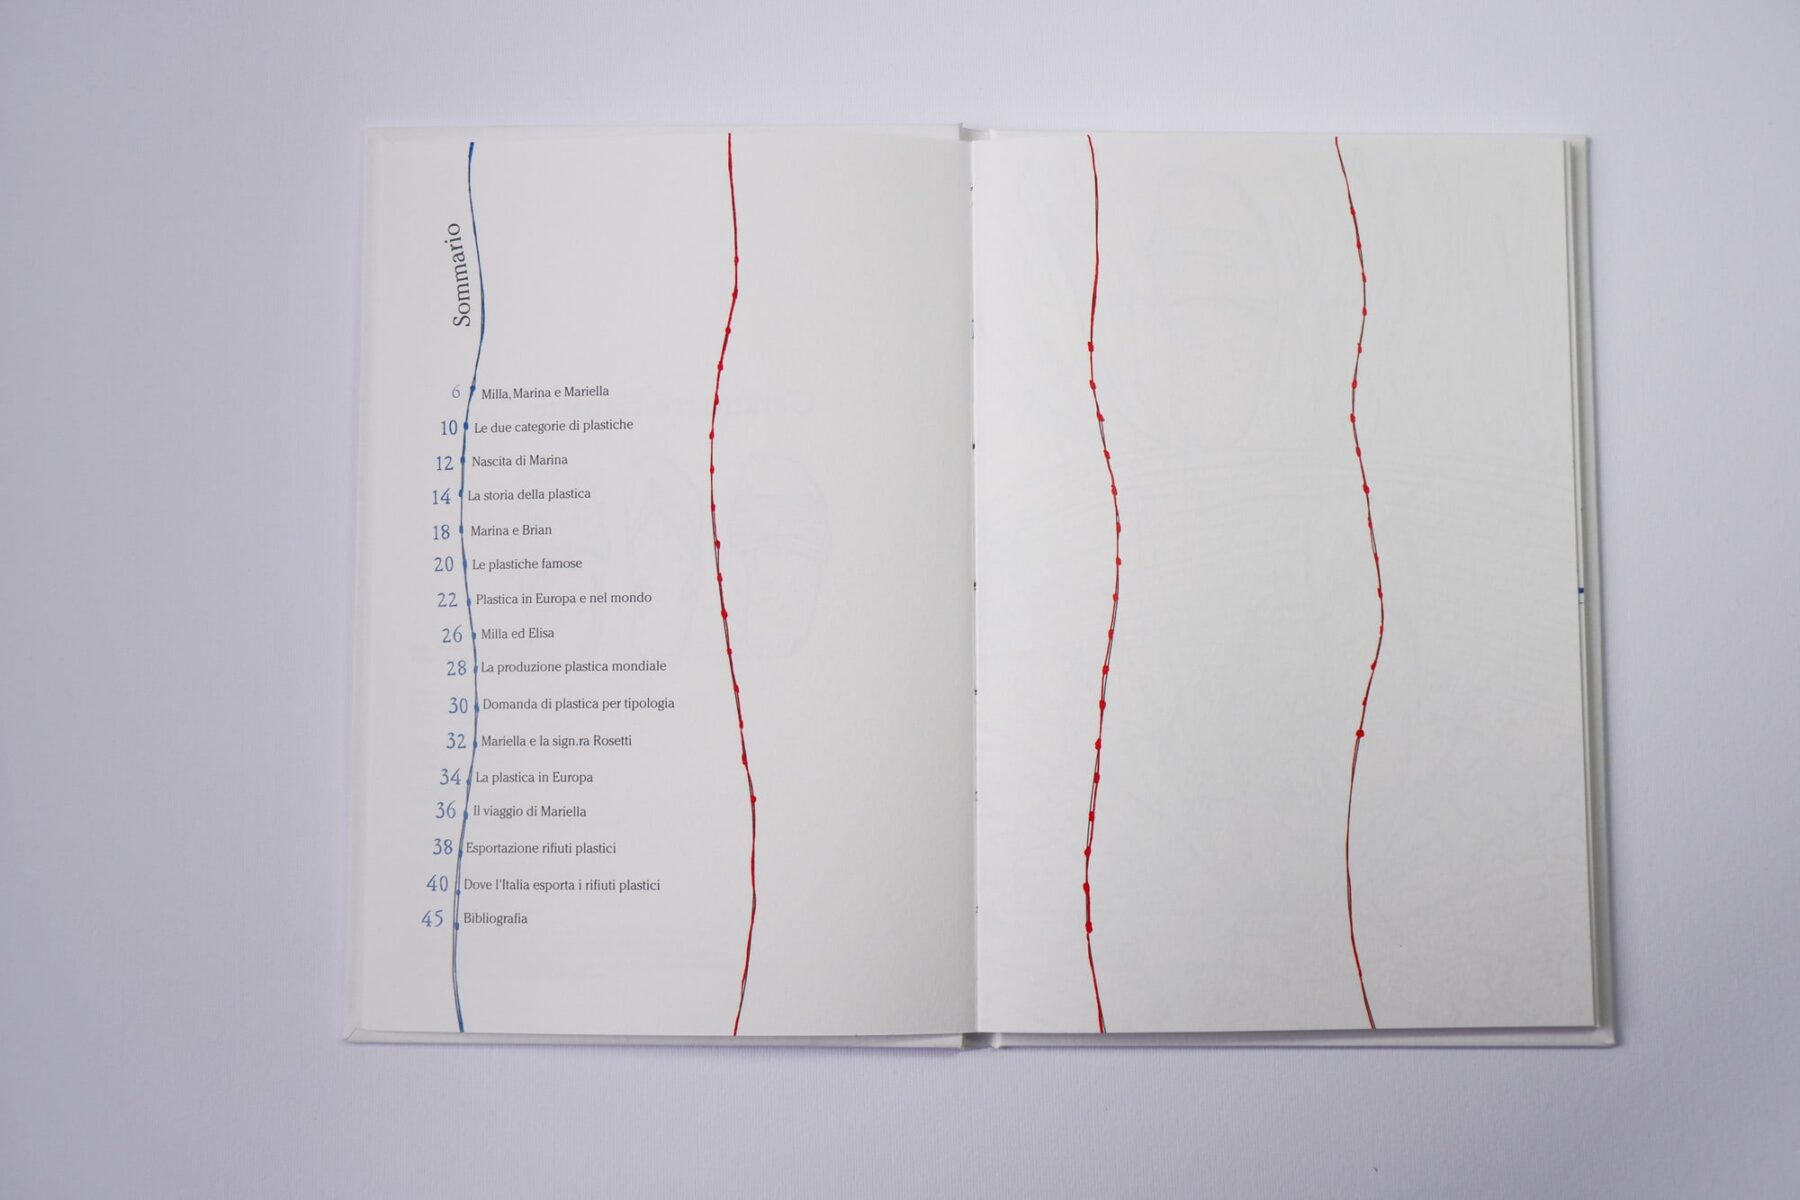 Sommario
6 Milla, Marina e Mariella
10 Le due categorie di plastiche
12 Nascita di Marina
14 La storia della plastica
18 Marina e Brian
20 Le plastiche famose
22 Plastica in Europa e nel mondo
26 Milla ed Elisa
28 La produzione plastica mondiale
30 Domanda di plastica per tipologia
32 Mariella e la sign.ra Rosetti
34 La plastica in Europa
36 Il viaggio di Mariella
38 Esportazione rifiuti plastici
40 Dove l'Italia esporta i rifiuti plastici
45 Bibliografia